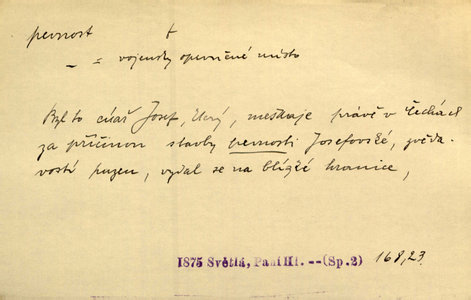 pevnost †
– = vojensky opevněné místo
Byl to císař Josef, který, meškaje právě v Čechách
za příčinou stavby pevnosti Josefovské, zvěda-
vostí puzen, vydal se na blízké hranice,
1875 Světlá, Paní Hl. -- (Sp.2) 168,23